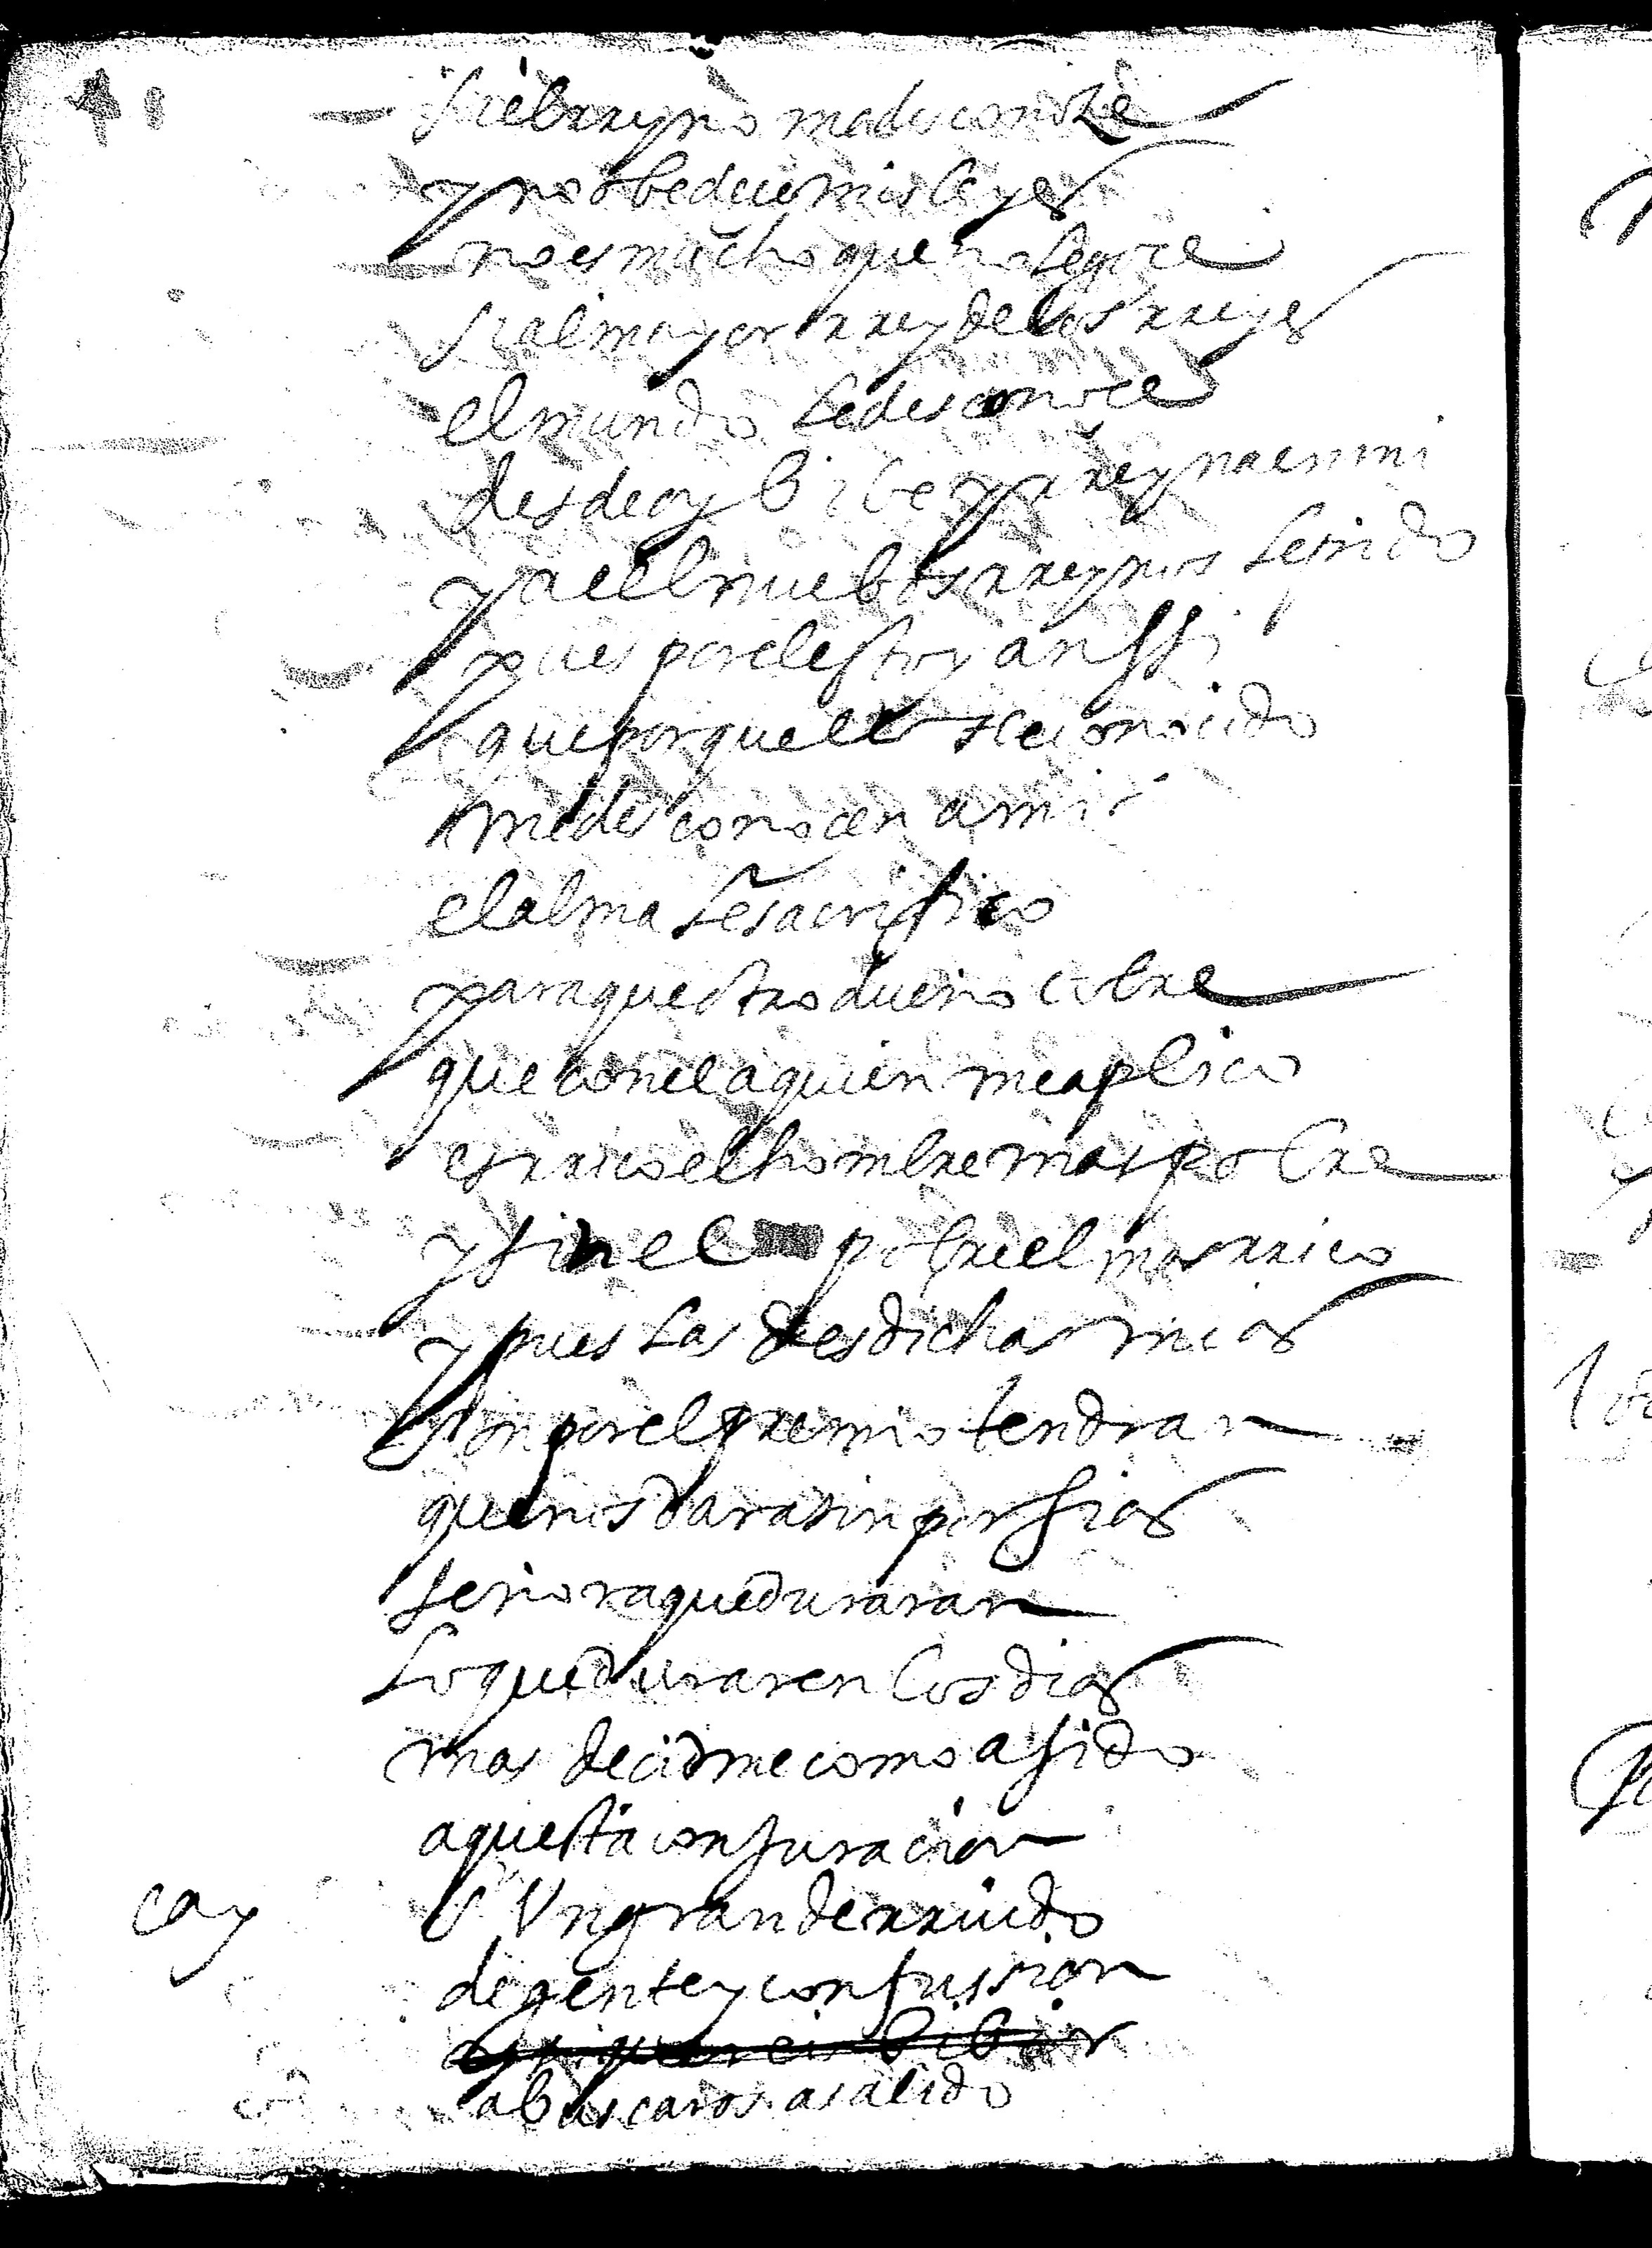 si el rreyno ma desconoze
y no obedece mis leyes
no es mucho que no se goze
si al mayor rrey de los rreyes
el mundo le desconoce
desde oy bibe y a rreyna en mi
y a el nuebos rreynos le pido
pues por el estoy anssi
que porque le e conocido
me desconocen a mi
el alma le sacrifico
para que otro dueño cobre
que con el a quien me aplico
es rrico el hombre mas pobre
y sin el pobre el mas rrico
y pues las desdichas mias
son por el premio tendran
que nos dara sin porfias
señora que duraran
lo que duraren los dias
mas decidme como a sido
aquesta conjuracion
cay U Un grande rruido
de gente y confussion
a buscaros a salido